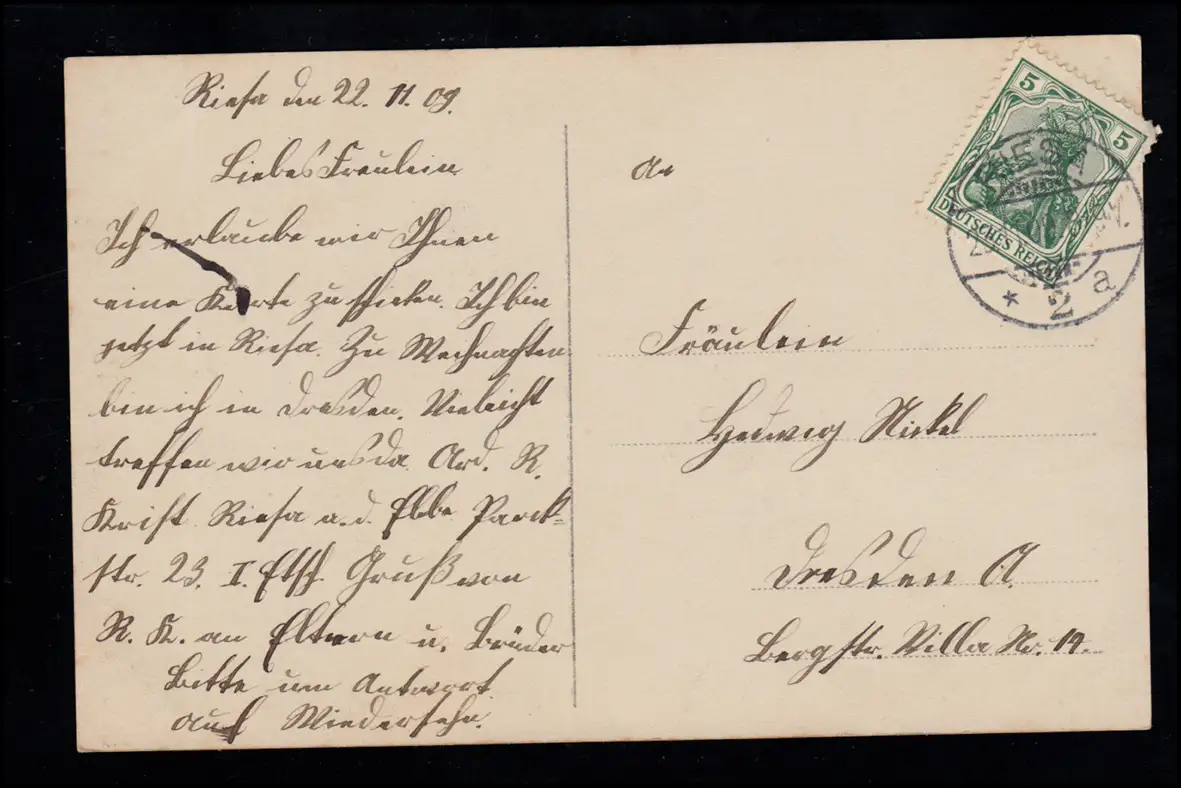 Riesa den 22. 11. 09.
Liebes Fräulein
Ich erlaube mir Ihnen
eine Karte zu schicken. Ich bin
jetzt in Riesa. Zu Weihnachten
bin ich in Dresden. Vieleicht
treffen wir uns da. Ard. R.
Krist Riesa a. d. Elbe Parck-
str. 23. I. Etg. Gruß von
R. K. an Eltern u. Brüder
Bitte um Antwort
auf Wiedersehn.
An
Fräulein
Hedwig Nickel
Dresden A.
Bergstr. Villa Nr. 19.
5
5
DEUTSCHES REICH
RIESA
* 2 a